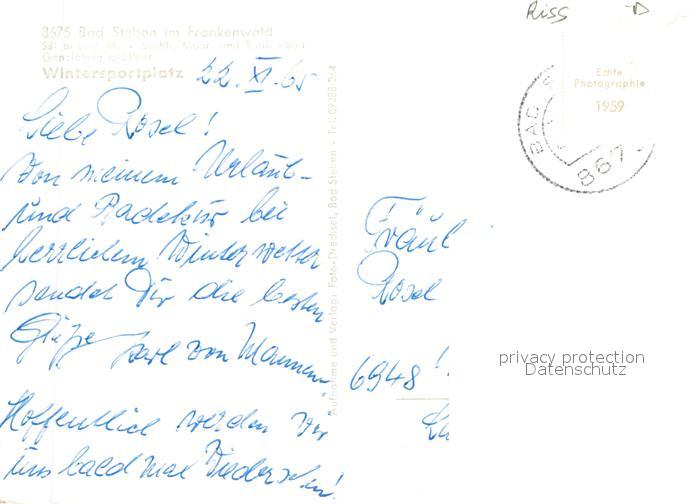 Riss
8675 Bad Steben im Frankenwald
581 m ü. d. M. • Stahl-, Moor- und Radiumbad
Ganzjährig geöffnet
Wintersportplatz
22. XI. 65
Liebe Rosel!
Von meinem Urlaub-
und Badekur bei
herrlichem Winterwetter
sendet Dir die besten
Grüße Karl von Mannem
Hoffentlich werden wir
uns bald mal Wiedersehen!
Aufnahme und Verlag: Foto-Dredisel, Bad Steben • Tel. 09288 264
Echte
Photographie
1959
BAD S
867
Fräul
Rosel
6948
privacy protection
Datenschutz